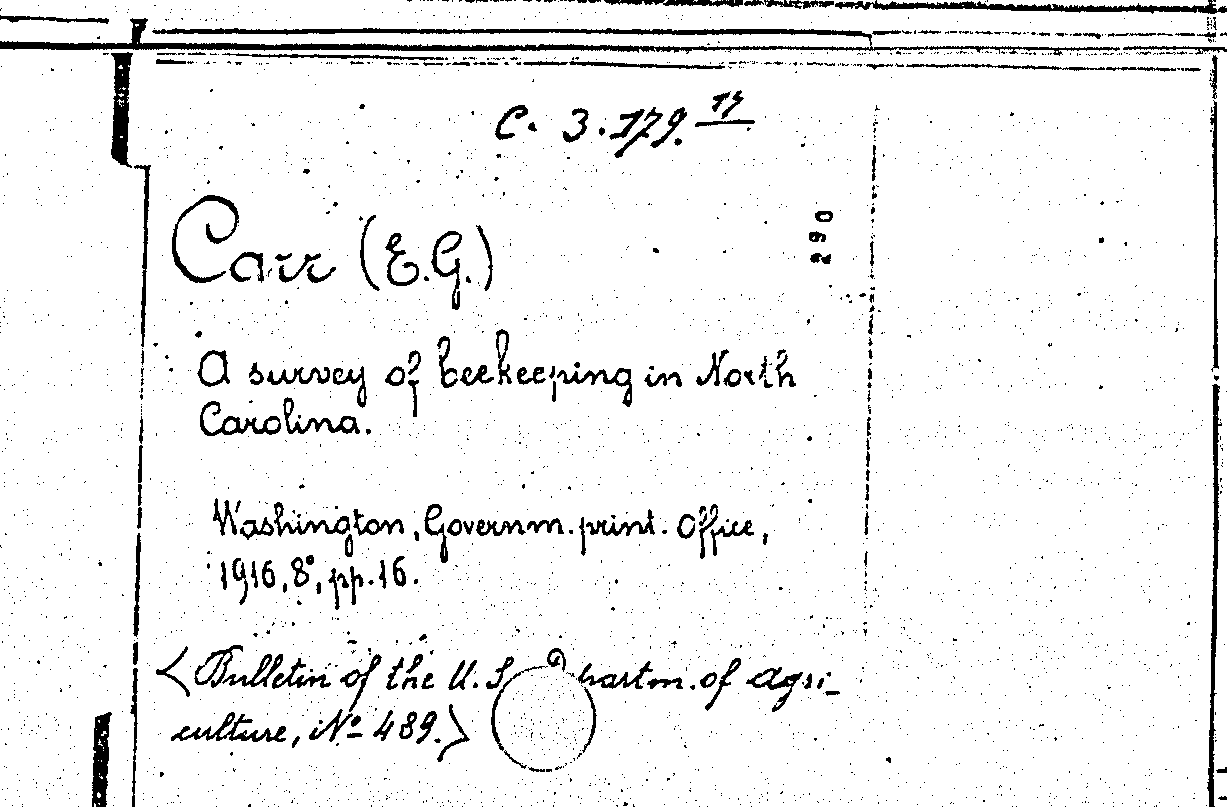 C. 3. 179.
Carr (E.G.)
290
A survey of beekeeping in North
Carolina.
Washington, Governm. print. Office,
1916, 8°, pp. 16.
<Bulletin of the U.S. partm. of agri-
culture, Nº 489.>